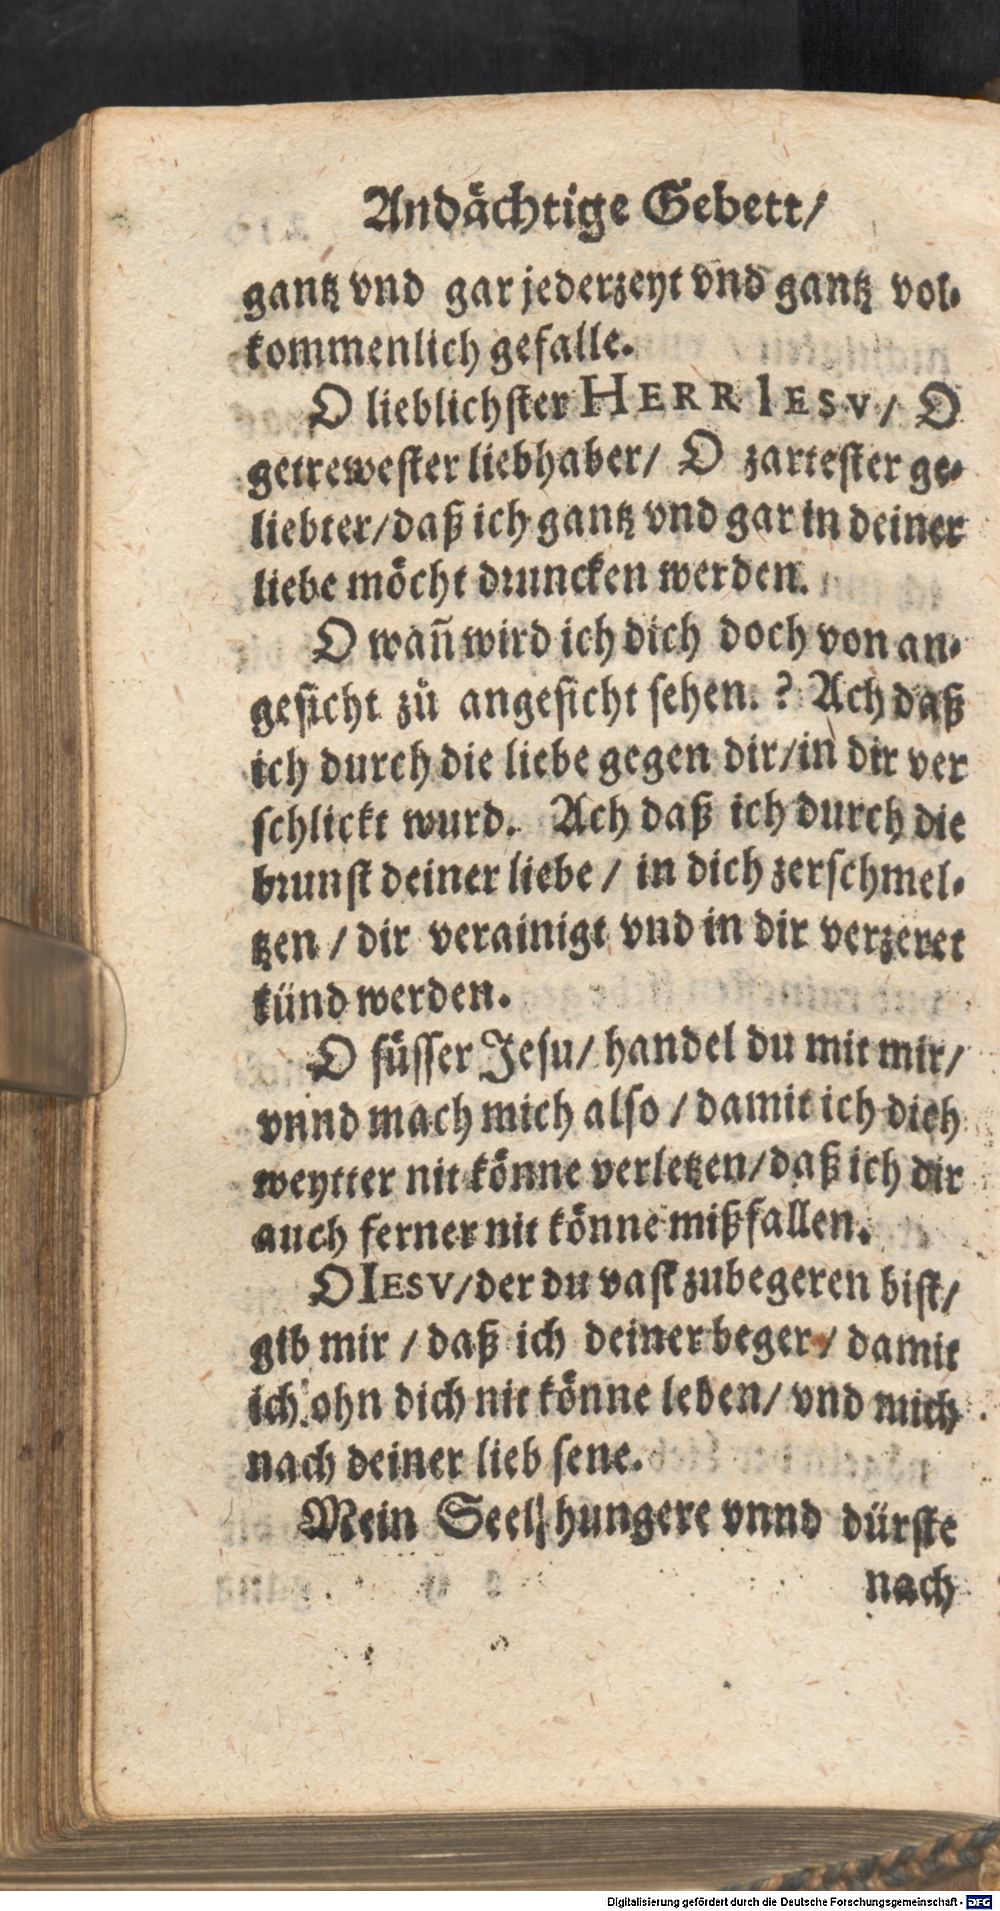 Andåchtige Gebett/
gantz vnd gar jederzeyt vnd gantz vol-
kommenlich gefalle.
O lieblichster HERR IESV/ O
getrewester liebhaber/ O zartester ge-
liebter/daß ich gantz vnd gar in deiner
liebe mőcht druncken werden.
O wañ wird ich dich doch von an-
gesicht zů angesicht sehen. ? Ach daß
ich durch die liebe gegen dir/in dir ver
schlickt wurd. Ach daß ich durch die
brunst deiner liebe / in dich zerschmel-
tzen / dir verainigt vnd in dir verzeret
künd werden.
O süsser Jesu/ handel du mit mir/
vnnd mach mich also / damit ich dich
weytter nit könne verletzen/daß ich dir
auch ferner nit könne mißfallen.
O IESV/der du vast zubegeren bist/
gib mir / daß ich deiner beger / damit
ich ohn dich nit könne leben/ vnd mich
nach deiner lieb sene.
Mein Seel hungere vnnd dürste
nach
Digitalisierung gefördert durch die Deutsche Forschungsgemeinschaft - DFG